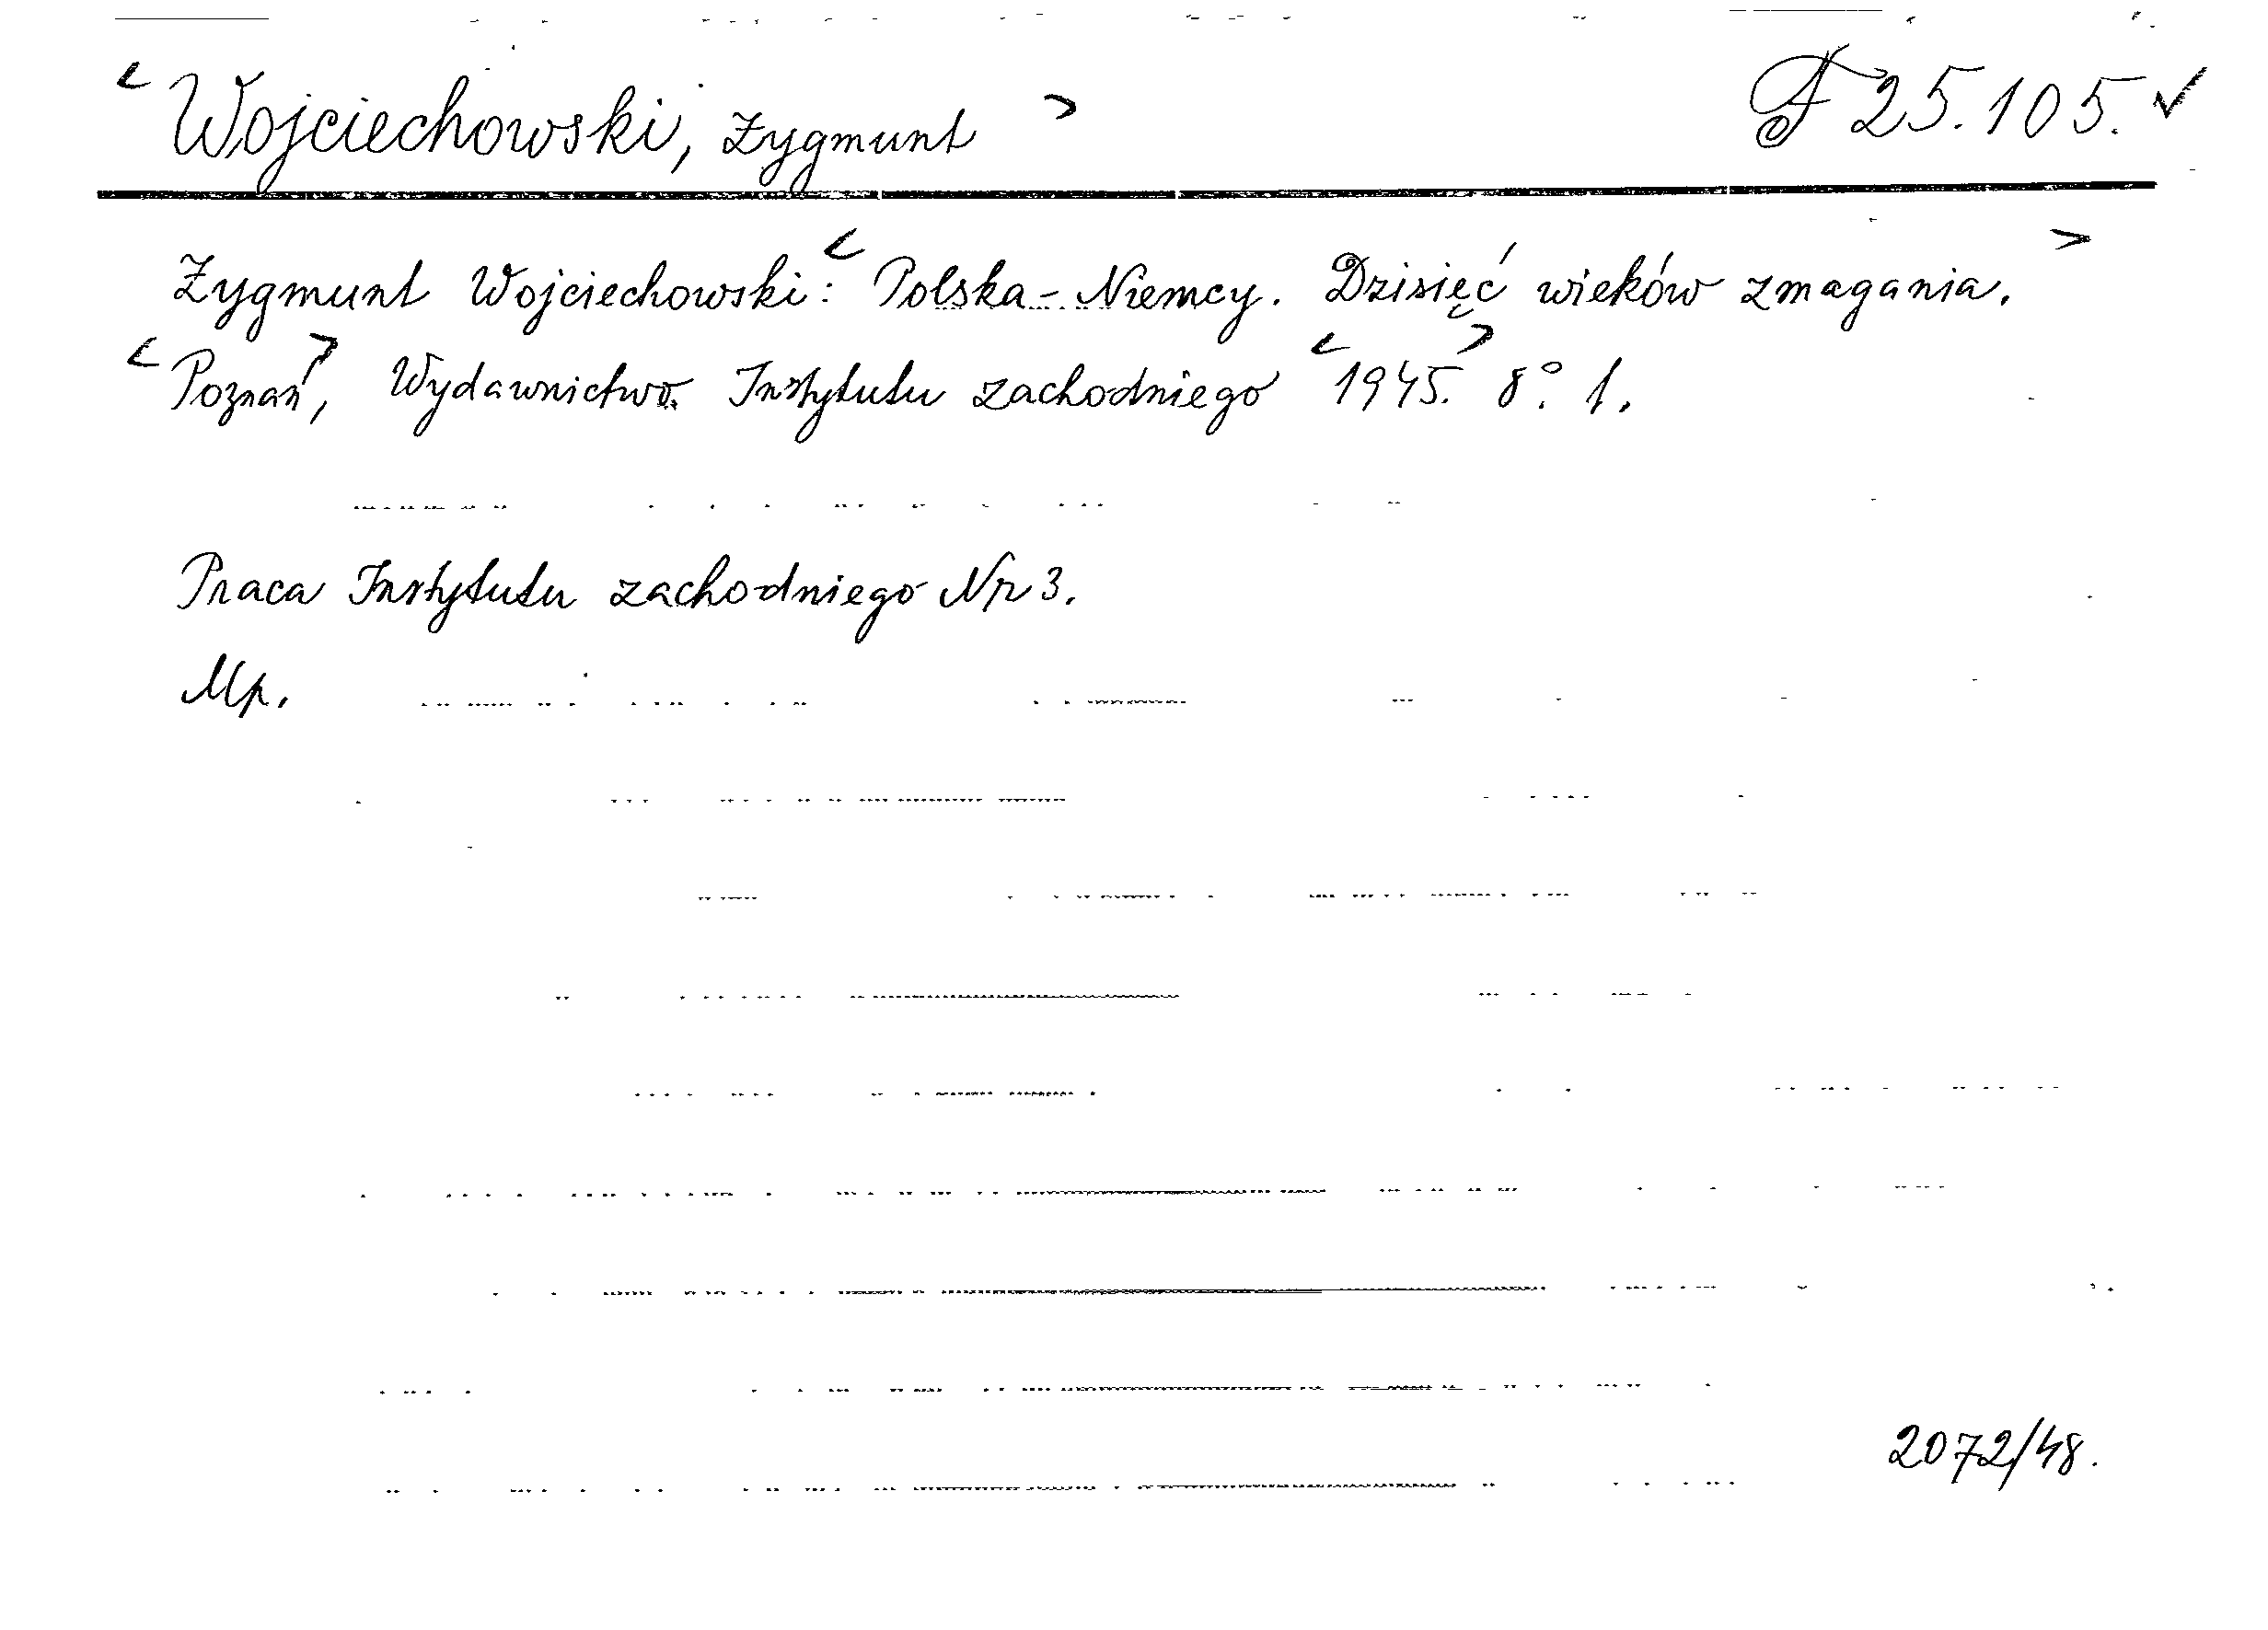 < Wojciechowski, Zygmunt > F 25.105. ✓
Zygmunt Wojciechowski: < Polska - Niemcy. Dzisięć wieków zmagania. >
< Poznań >, Wydawnictwo. Instytutu zachodniego < 1945. > 8° 1.
Praca Instytutu zachodniego Nr 3.
Mp.
2072/48.